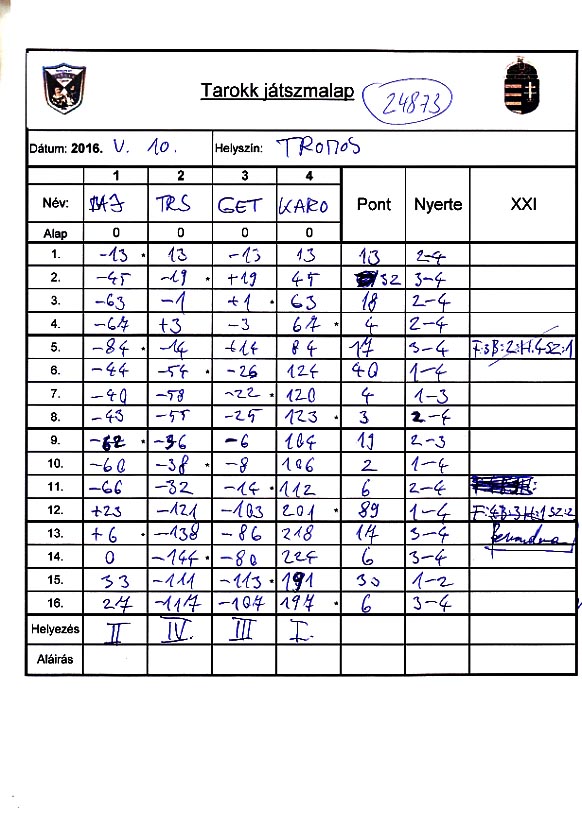 Tarokk játszmalap 24873
Dátum: 2016. V. 10. Helyszín: TROMOS
1 2 3 4
Név: BAJ TRS GET KARO Pont Nyerte XXI
Alap 0 0 0 0
1. -13 * 13 -13 13 13 2-4
2. -45 -19 * +19 45 32 3-4
3. -63 -1 +1 * 63 18 2-4
4. -67 +3 -3 67 * 4 2-4
5. -84 * -14 +14 84 17 3-4
6. -44 -54 * -26 124 40 1-4
7. -40 -58 -22 * 120 4 1-3
8. -43 -55 -25 123 * 3 2-4
9. -62 * -36 -6 104 19 2-3
10. -60 -38 * -8 106 2 1-4
11. -66 -32 -14 * 112 6 2-4
12. +23 -121 -103 201 * 89 1-4
13. +6 * -138 -86 218 17 3-4
14. 0 -144 * -80 224 6 3-4
15. 33 -111 -113 * 191 33 1-2
16. 27 -117 -107 197 * 6 3-4
Helyezés II IV. III I.
Aláírás